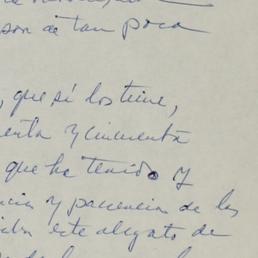 son de tan poca
, que sí los tiene,
enta y cincuenta
que ha tenido y
cias y paciencia de los
este alegato de